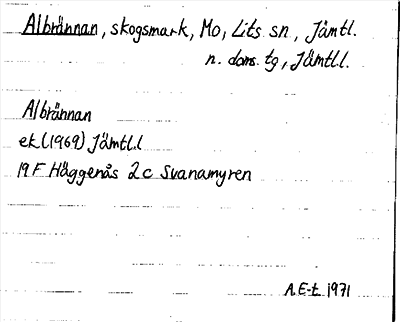 Albrännan, skogsmark, Mo, Lits sn., Jämtl.
n. doms. tg, Jämtl.l.
Albrännan
ek (1969) Jämtl.l
19 F Häggenås 2c Svanamyren
A.E-t 1971